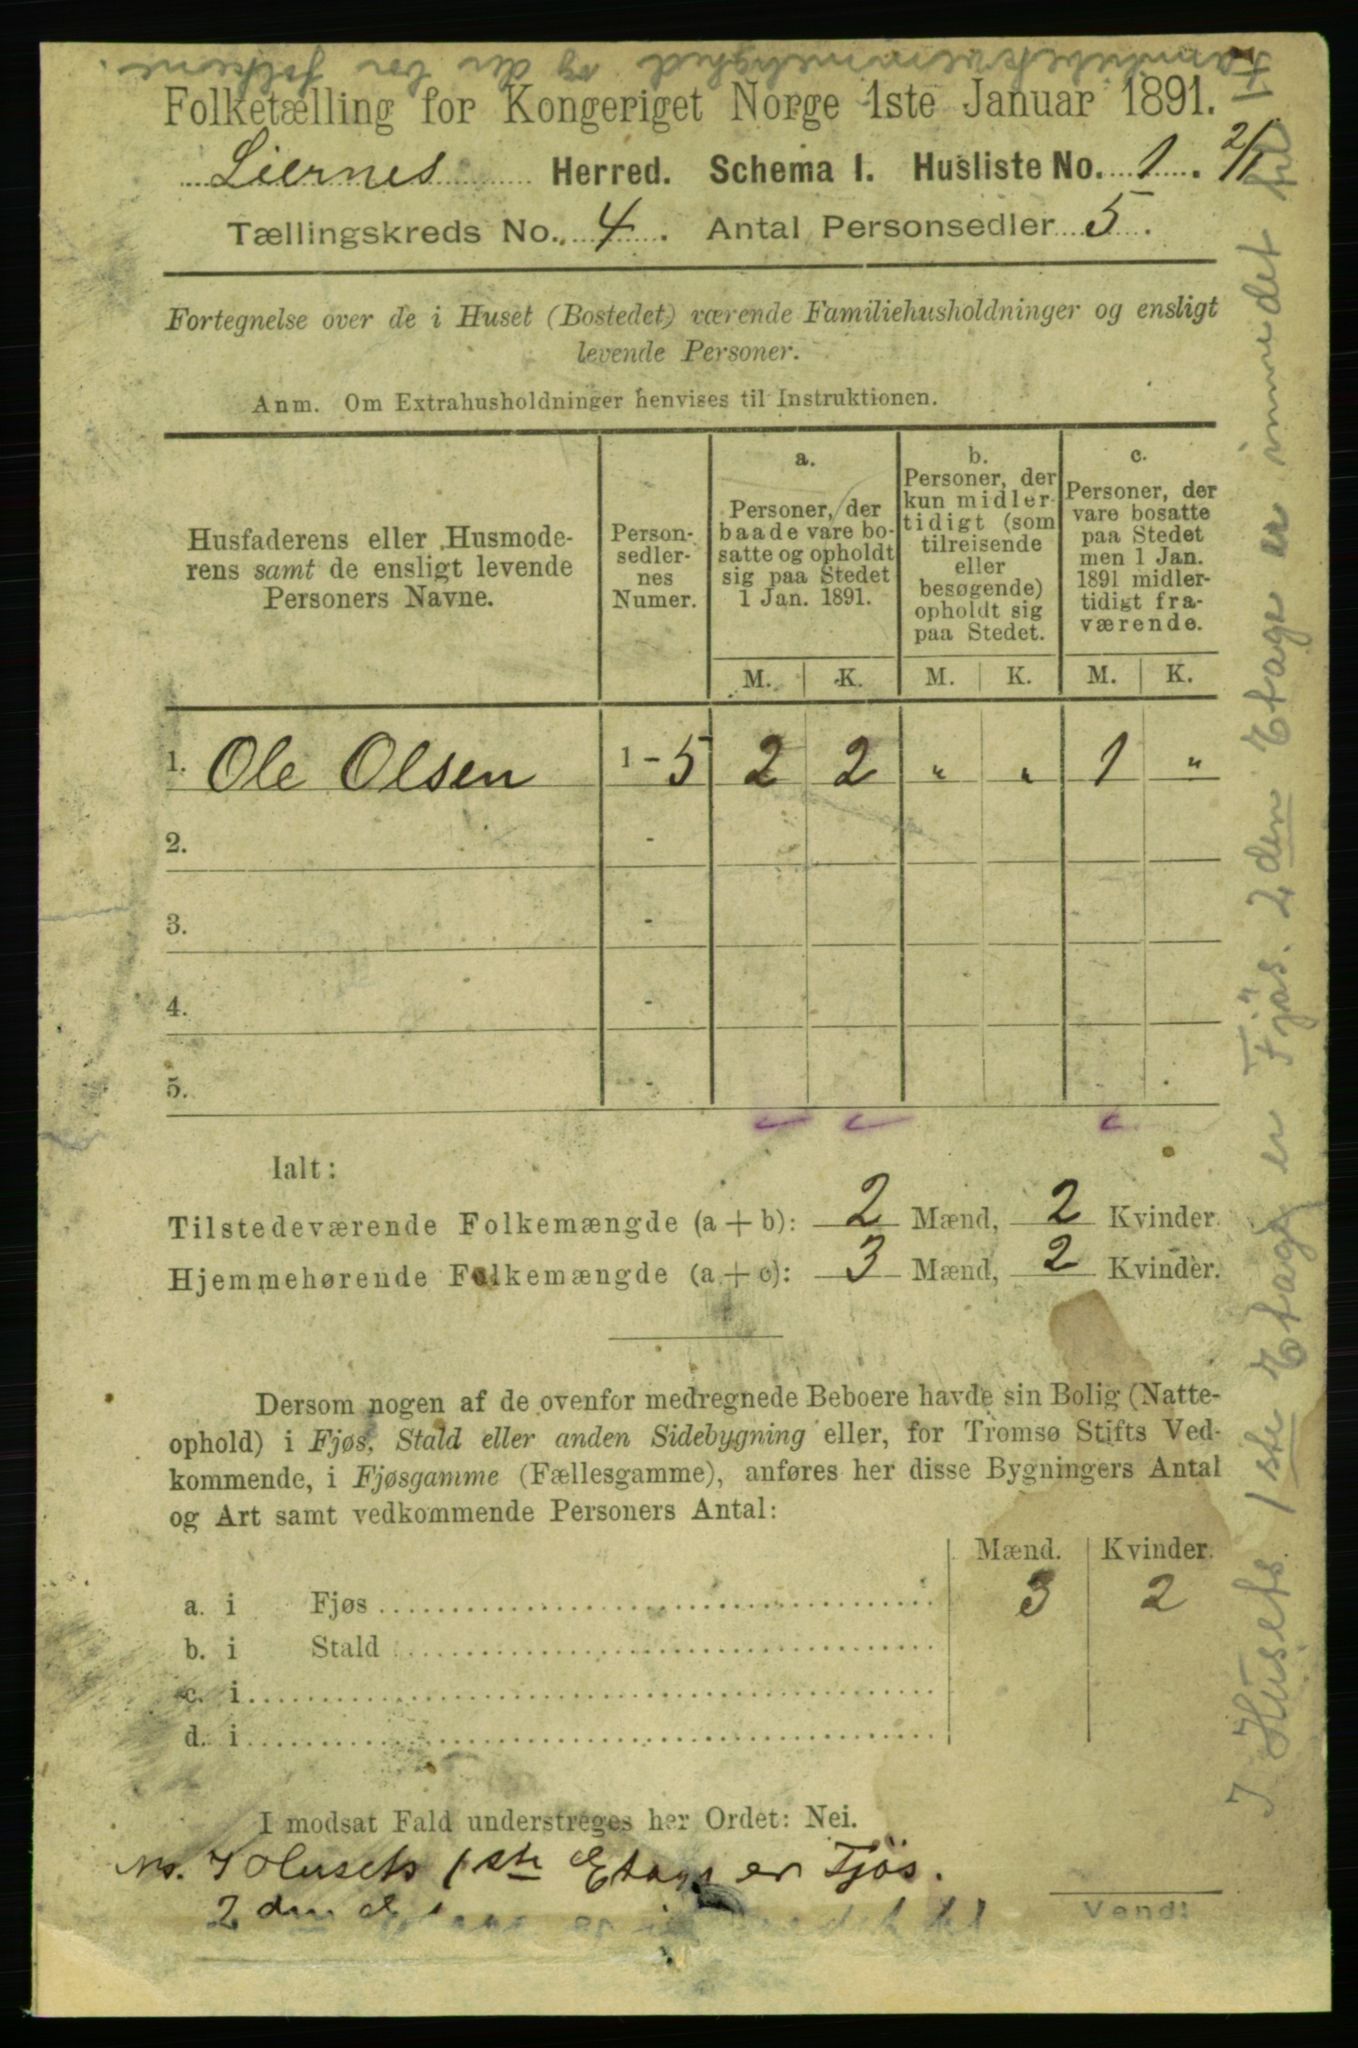 Folketælling for Kongeriget Norge 1ste Januar 1891.
Liernes Herred. Schema I. Husliste No. 1. 2/1
Tællingskreds No. 4. Antal Personsedler 5.
Fortegnelse over de i Huset (Bostedet) værende Familiehusholdninger og ensligt
levende Personer.
Anm. Om Extrahusholdninger henvises til Instruktionen.
Husfaderens eller Husmode-
rens samt de ensligt levende
Personers Navne.
Person-
sedler-
nes
Numer.
a.
Personer, der
baade vare bo-
satte og opholdt
sig paa Stedet
1 Jan. 1891.
b.
Personer, der
kun midler-
tidigt (som
tilreisende
eller
besøgende)
opholdt sig
paa Stedet.
c.
Personer, der
vare bosatte
paa Stedet
men 1 Jan.
1891 midler-
tidigt fra-
værende.
M. K. M. K. M. K.
1. Ole Olsen 1-5 2 2 " " 1 "
2. -
3. -
4. -
5. -
Ialt:
Tilstedeværende Folkemængde (a + b): 2 Mænd, 2 Kvinder.
Hjemmehørende Folkemængde (a + c): 3 Mænd, 2 Kvinder.
Dersom nogen af de ovenfor medregnede Beboere havde sin Bolig (Natte-
ophold) i Fjøs, Stald eller anden Sidebygning eller, for Tromsø Stifts Ved-
kommende, i Fjøsgamme (Fællesgamme), anføres her disse Bygningers Antal
og Art samt vedkommende Personers Antal:
Mænd. Kvinder.
a. i Fjøs 3 2
b. i Stald
c. i
d. i
I modsat Fald understreges her Ordet: Nei.
I Husets 1ste Etage er Fjös.
2den
Vend!
I Husets 1ste Etage er Fjös. 2den Etage er innredet til
og der bor folkene.